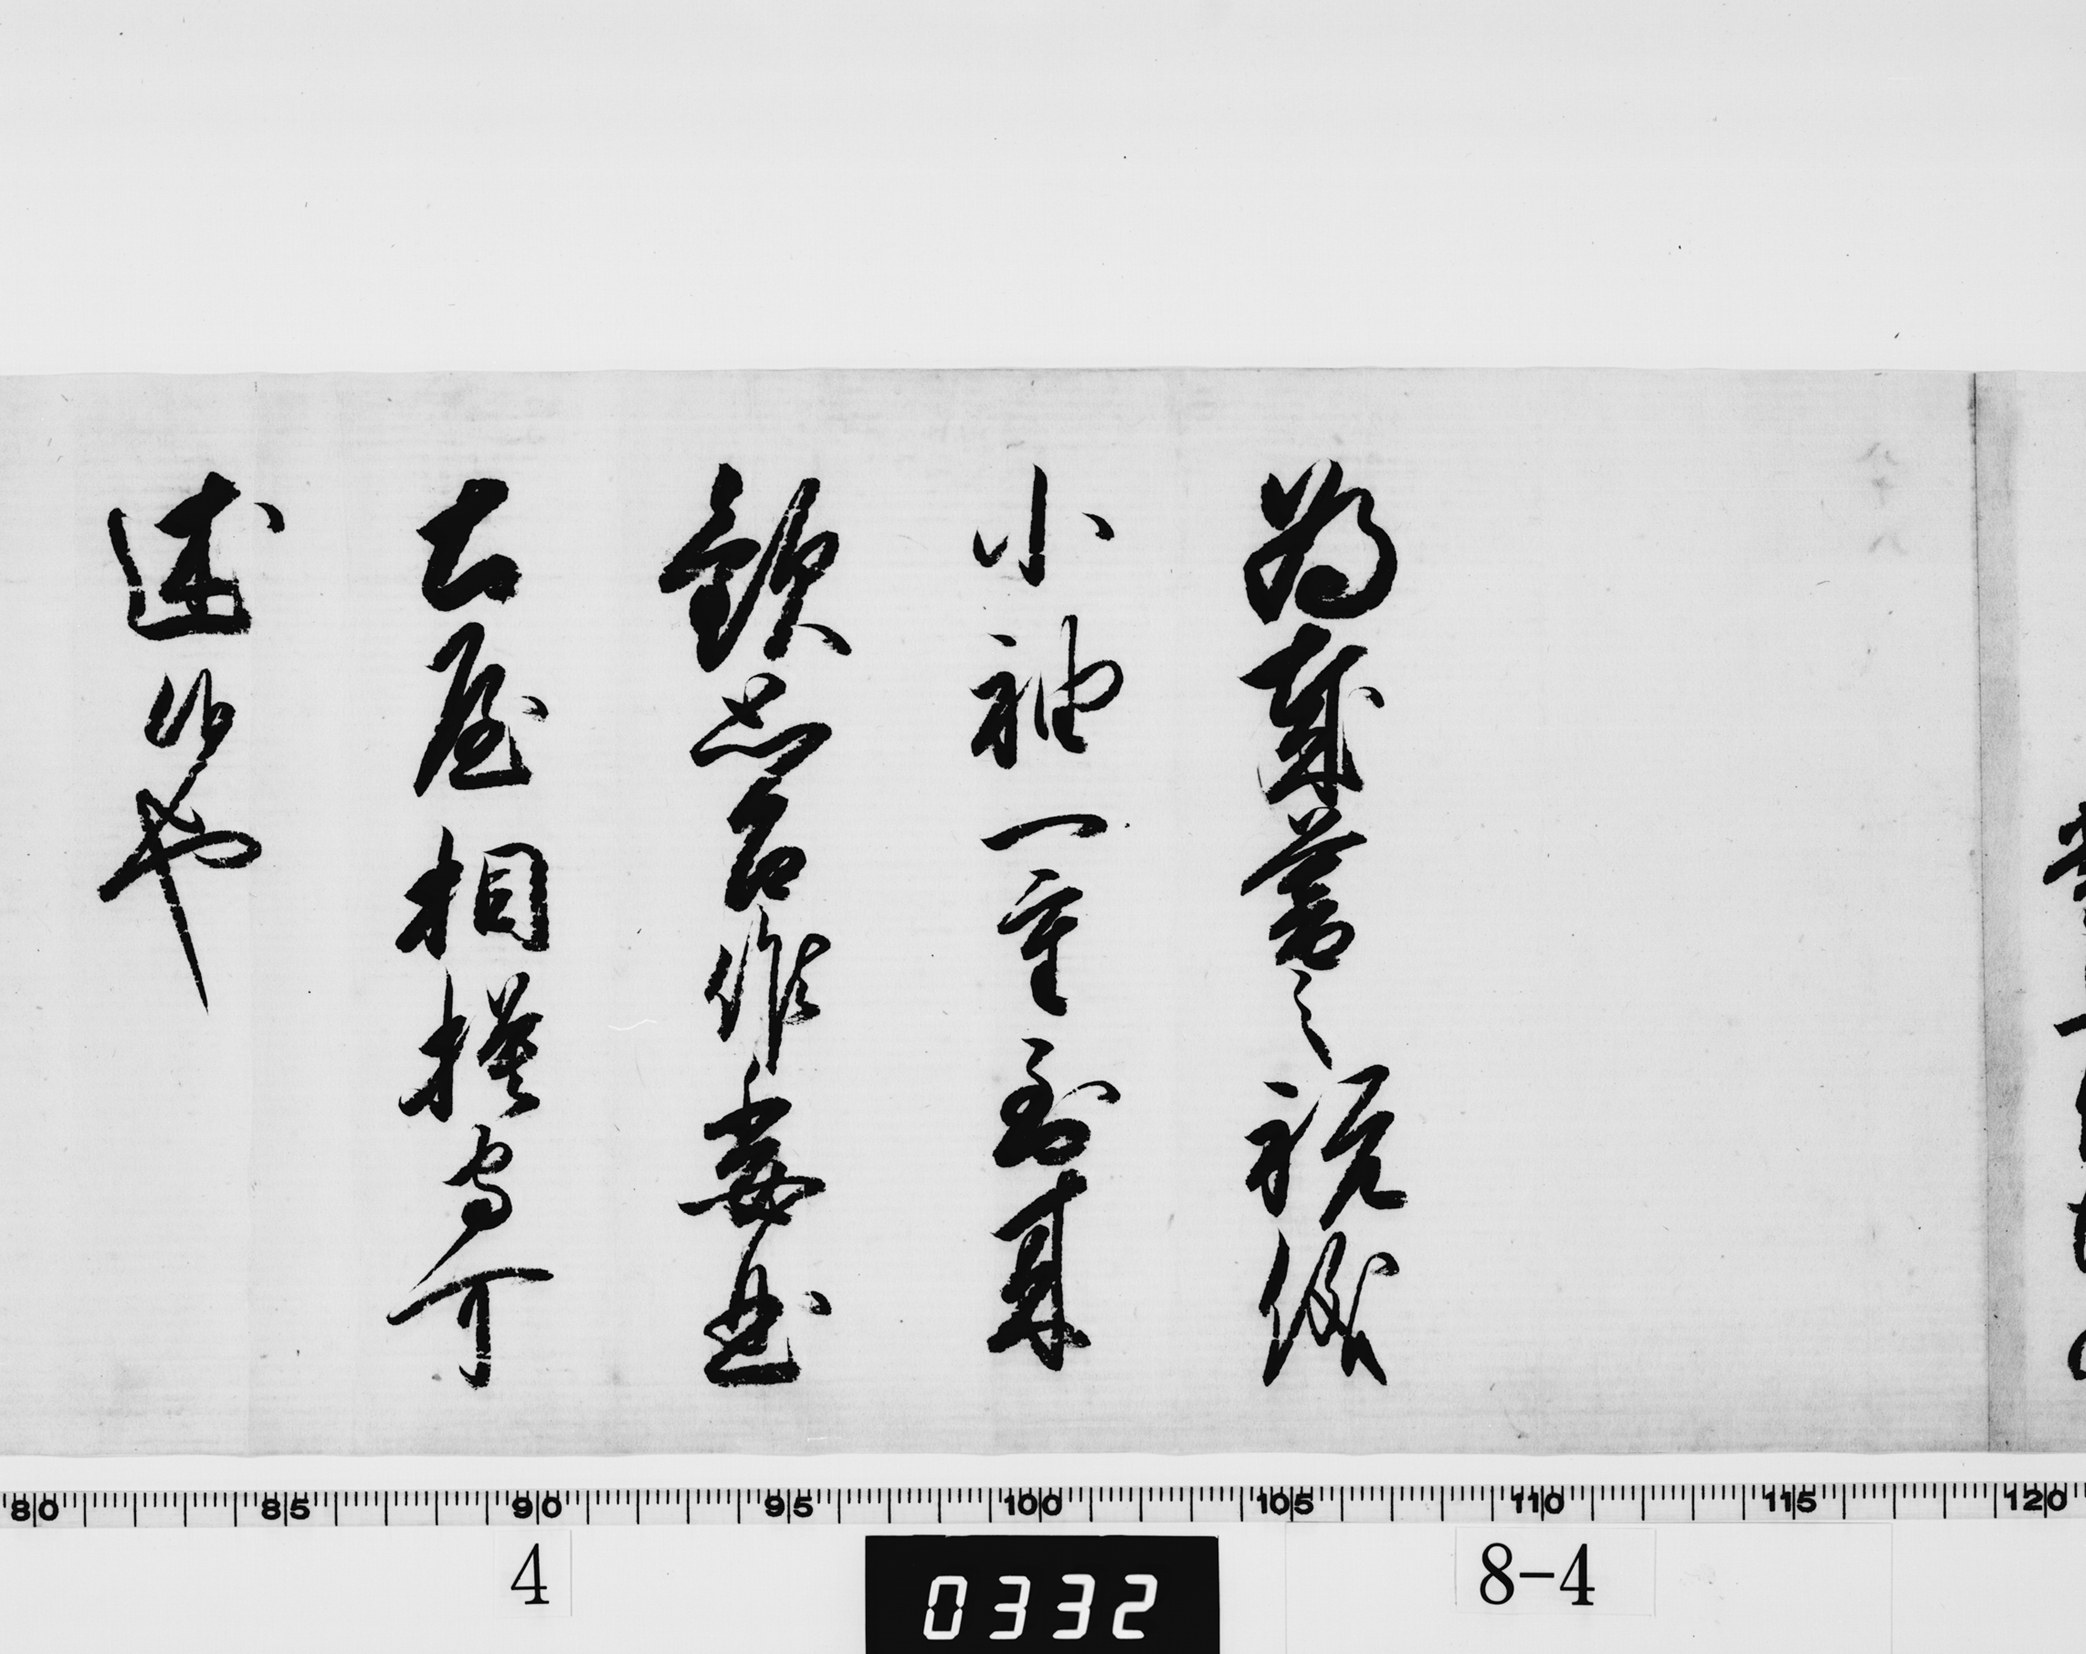 為歳暮之祝儀
小袖一重到来
歓思召候委曲
土屋相模守可
述候也
80 85 90 95 100 105 110 115 120
4
0332
8-4